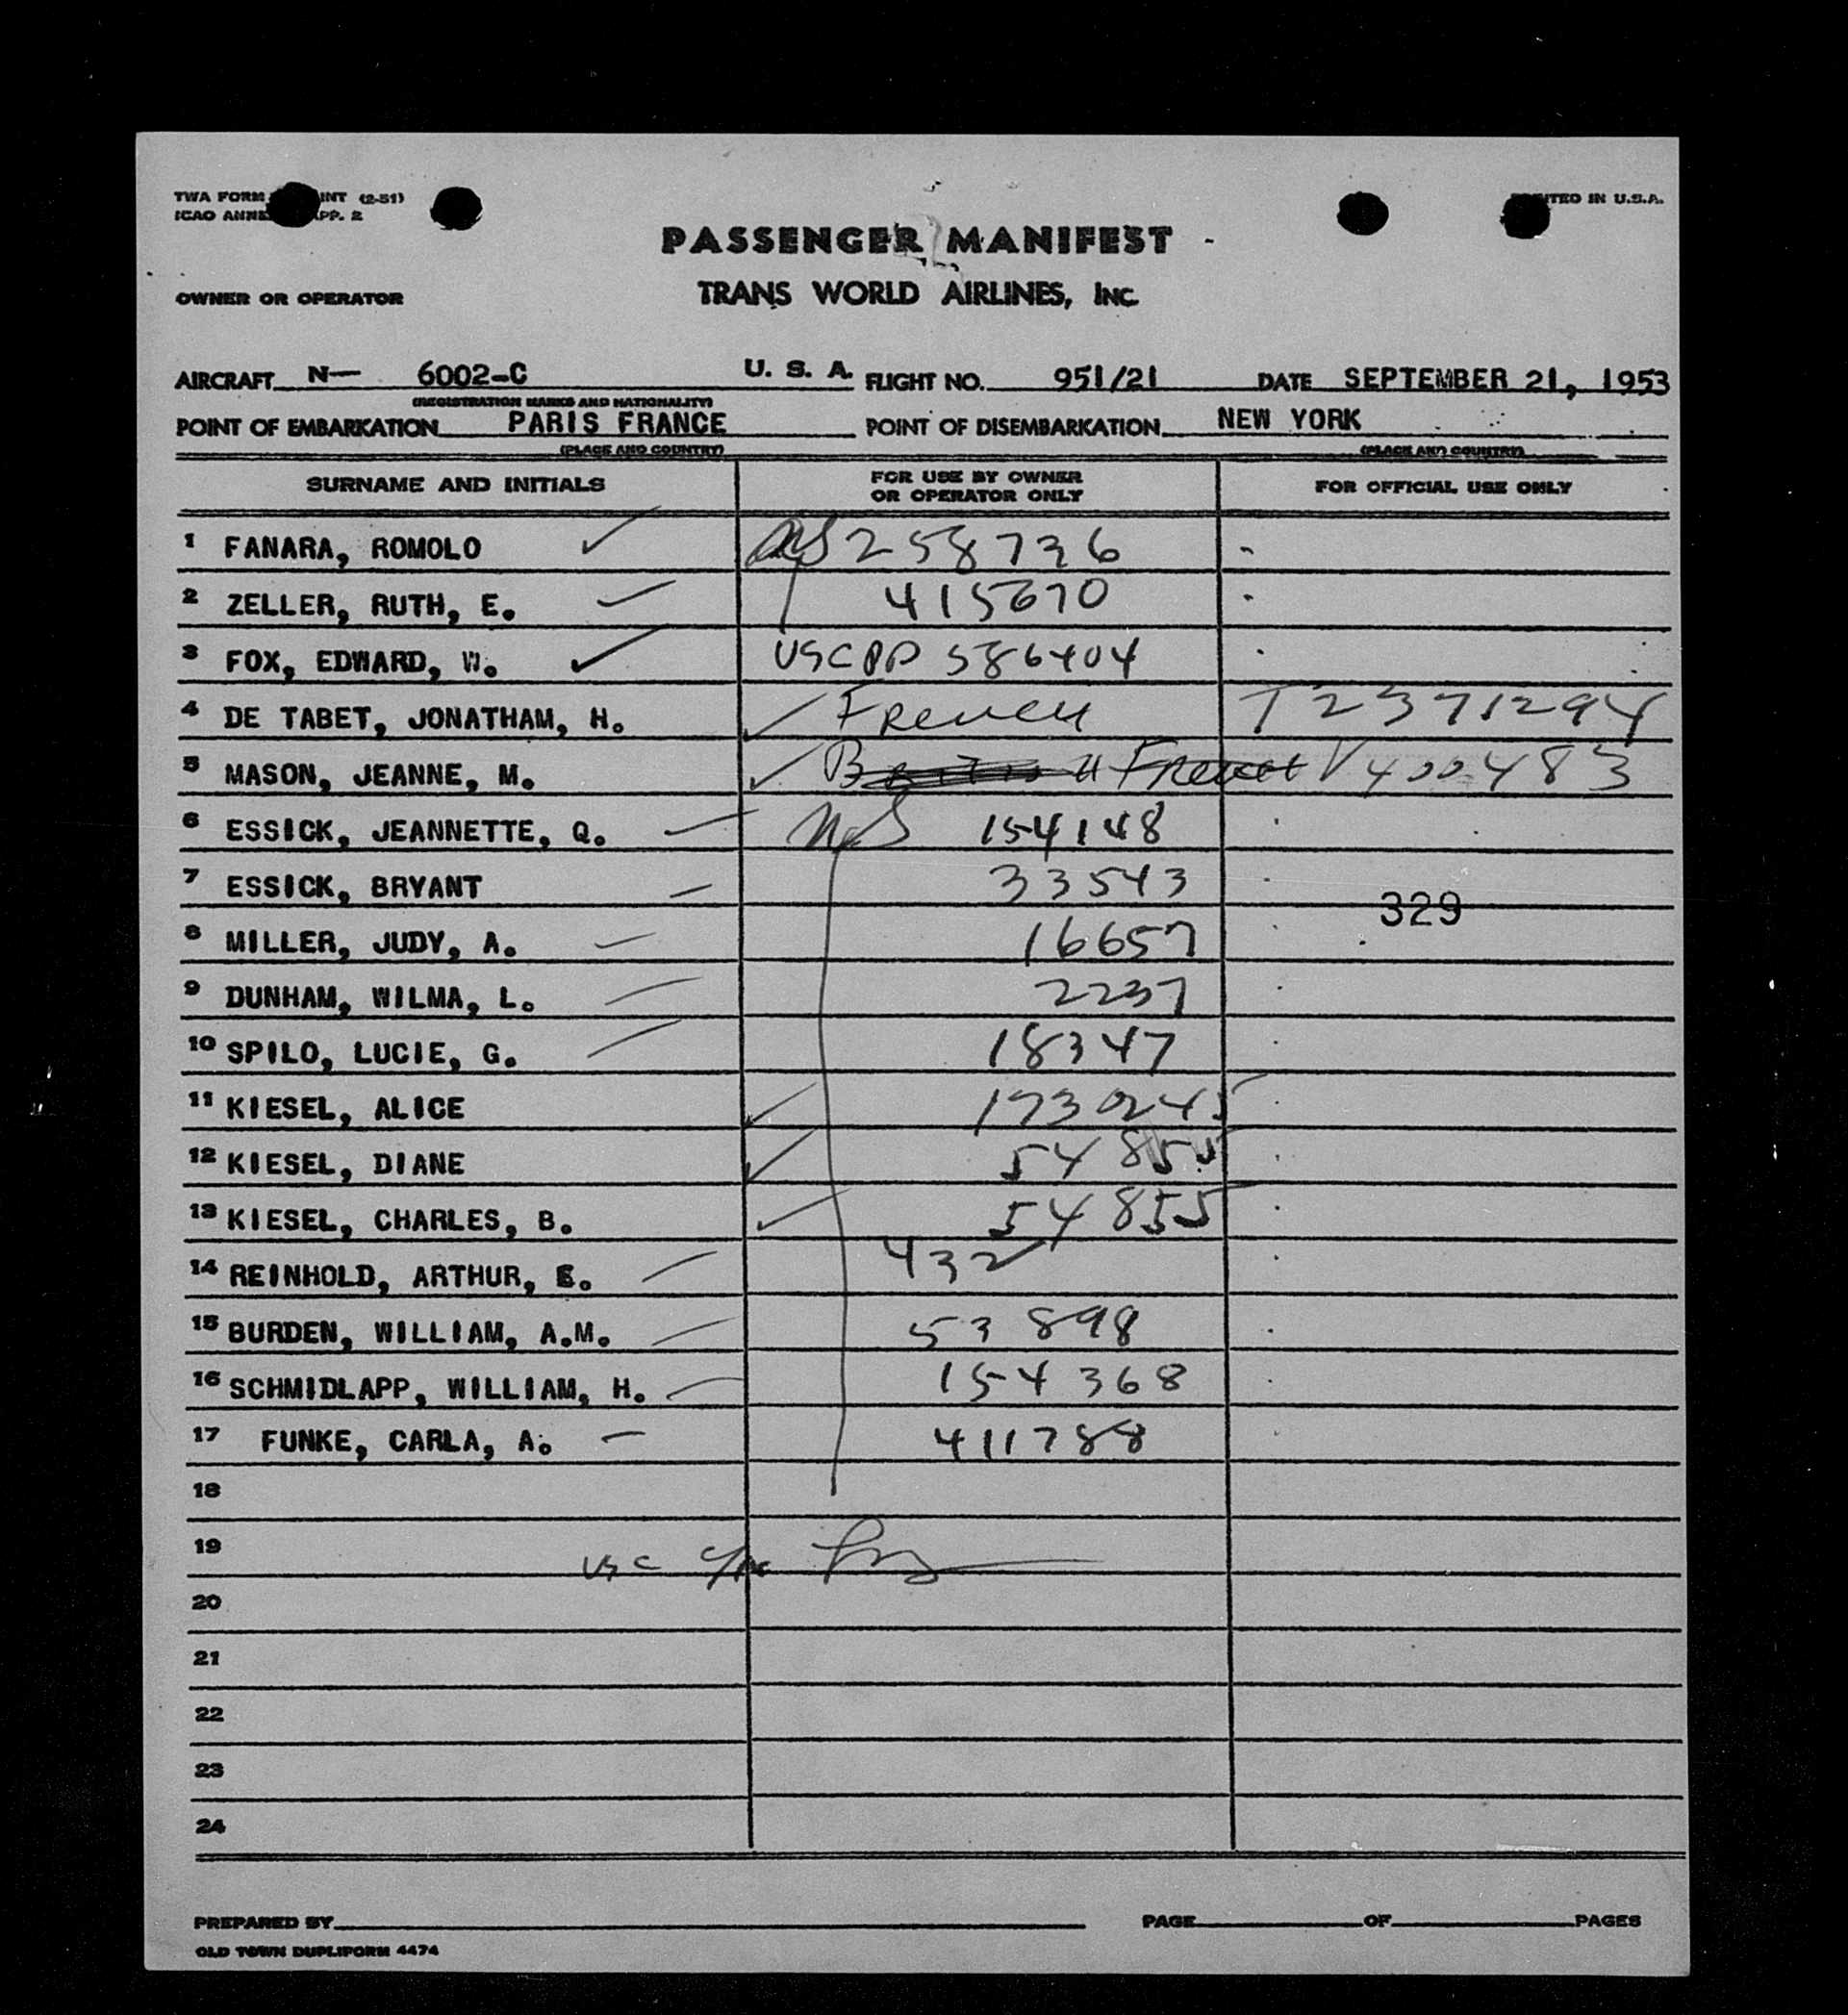 TWA FORM INT (2-51)
ICAO ANNE PP. 2
TED IN U.S.A.
PASSENGER MANIFEST
OWNER OR OPERATOR
TRANS WORLD AIRLINES, INC
AIRCRAFT N— 6002-C U. S. A. FLIGHT NO. 951/21 DATE SEPTEMBER 21, 1953
(REGISTRATION MARKS AND NATIONALITY)
POINT OF EMBARKATION PARIS FRANCE POINT OF DISEMBARKATION NEW YORK
(PLACE AND COUNTRY) (PLACE AND COUNTRY)
SURNAME AND INITIALS FOR USE BY OWNER OR OPERATOR ONLY FOR OFFICIAL USE ONLY
1 FANARA, ROMOLO 258736
2 ZELLER, RUTH, E. 415670
3 FOX, EDWARD, W. USC PP 586404
4 DE TABET, JONATHAM, H. French T2371294
5 MASON, JEANNE, M. French V400483
6 ESSICK, JEANNETTE, Q. US 154148
7 ESSICK, BRYANT 33543
329
8 MILLER, JUDY, A. 16657
9 DUNHAM, WILMA, L. 2237
10 SPILO, LUCIE, G. 18347
11 KIESEL, ALICE 1730245
12 KIESEL, DIANE 54855
13 KIESEL, CHARLES, B. 54855
14 REINHOLD, ARTHUR, E. 432
15 BURDEN, WILLIAM, A.M. 53898
16 SCHMIDLAPP, WILLIAM, H. 154368
17 FUNKE, CARLA, A. 411788
18
19 USC
20
21
22
23
24
PREPARED BY PAGE OF PAGES
OLD TOWN DUPLIFORM 4474